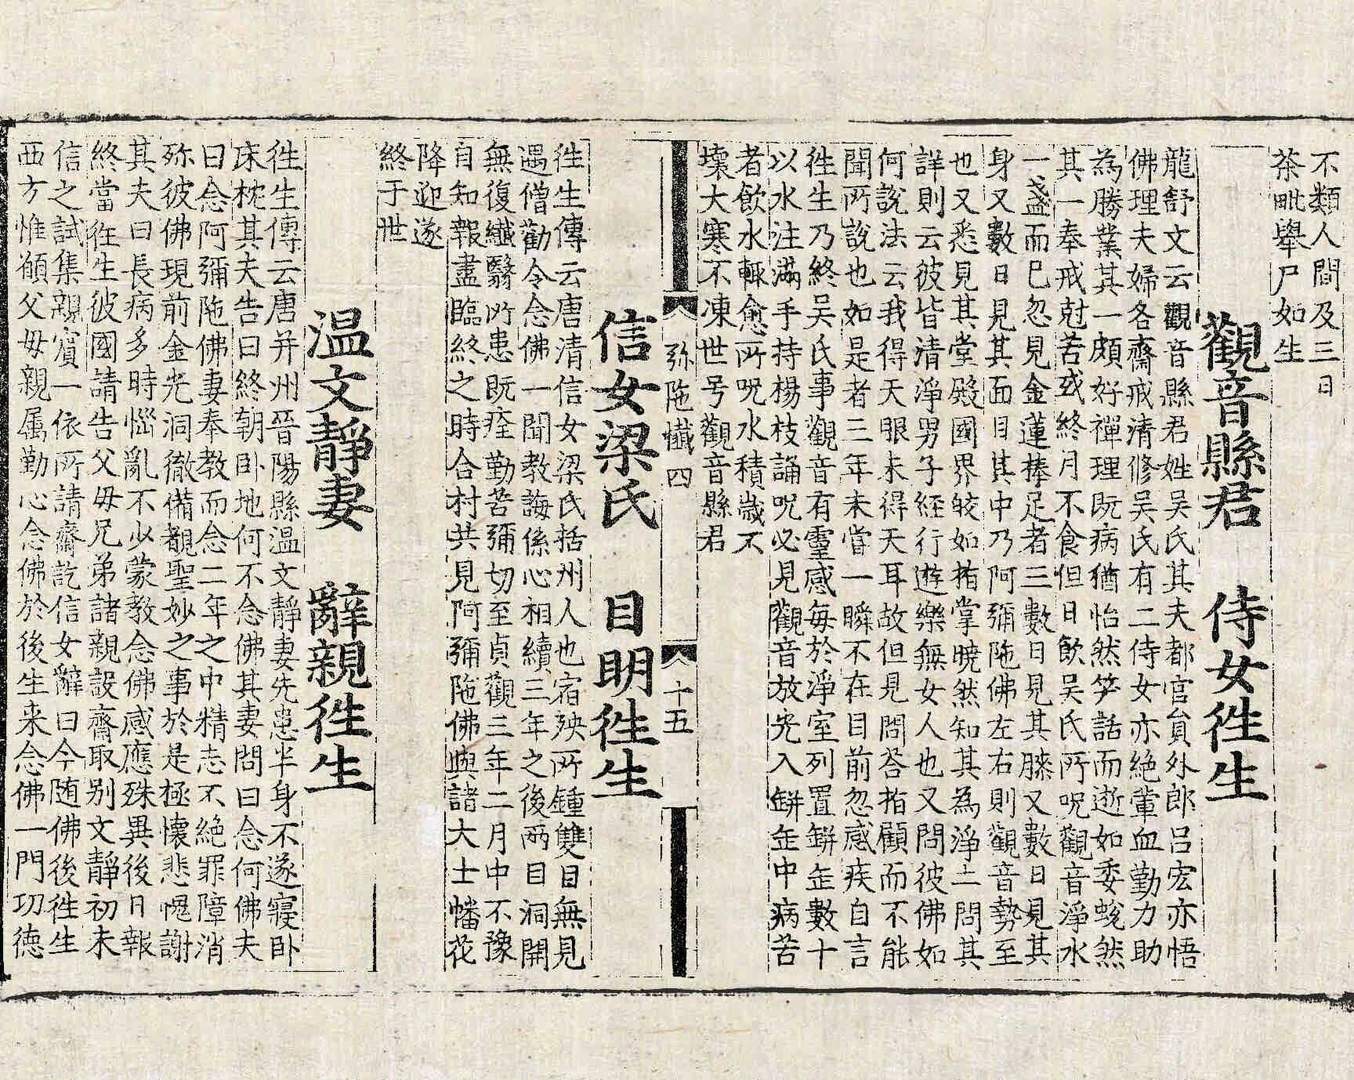 不類人間及三日
茶毗舉尸如生
觀音縣君　侍女徃生
龍舒文云觀音縣君姓吳氏其夫都官貟外郎呂宏亦悟
佛理夫婦各齋戒清修吳氏有二侍女亦絶葷血勤力助
為勝業其一頗好禪理既病猶怡然笑話而逝如委蛻然
其一奉戒尅苦或終月不食但日飲吳氏所呪觀音淨水
一盞而已忽見金蓮捧足者三數日見其膝又數日見其
身又數日見其面目其中乃阿彌陁佛左右則觀音勢至
也又悉見其堂殿國界皎如指掌曉然知其為淨土問其
詳則云彼皆清淨男子經行遊樂無女人也又問彼佛如
何說法云我得天眼未得天耳故但見問荅指顧而不能
聞所說也如是者三年未嘗一瞬不在目前忽感疾自言
徃生乃終吳氏事觀音有靈感每於淨室列置缾缶數十
以水注滿手持楊枝誦呪必見觀音放光入缾缶中病苦
者飲水輒愈所呪水積歲不
壞大寒不凍世号觀音縣君
弥陁懺四
十五
信女梁氏　目明徃生
徃生傳云唐清信女梁氏括州人也宿殃所鍾雙目無見
遇僧勸令念佛一聞教誨係心相續三年之後兩目洞開
無復纖翳所患既痊勤苦彌切至貞觀三年二月中不豫
自知報盡臨終之時合村共見阿彌陁佛與諸大士幡花
降迎遂
終于世
温文靜妻　辭親徃生
徃生傳云唐并州晉陽縣温文靜妻先患半身不遂寢卧
床枕其夫告曰終朝卧地何不念佛其妻問曰念何佛夫
曰念阿彌陁佛妻奉教而念二年之中精志不絶罪障消
弥彼佛現前金光洞徹備覩聖妙之事於是極懷悲愧謝
其夫曰長病多時惱亂不少蒙教念佛感應殊異後日報
終當徃生彼國請告父母兄弟諸親設齋取別文靜初未
信之試集親賓一依所請齋訖信女辭曰今随佛後徃生
西方惟願父母親属勤心念佛於後生来念佛一門功德